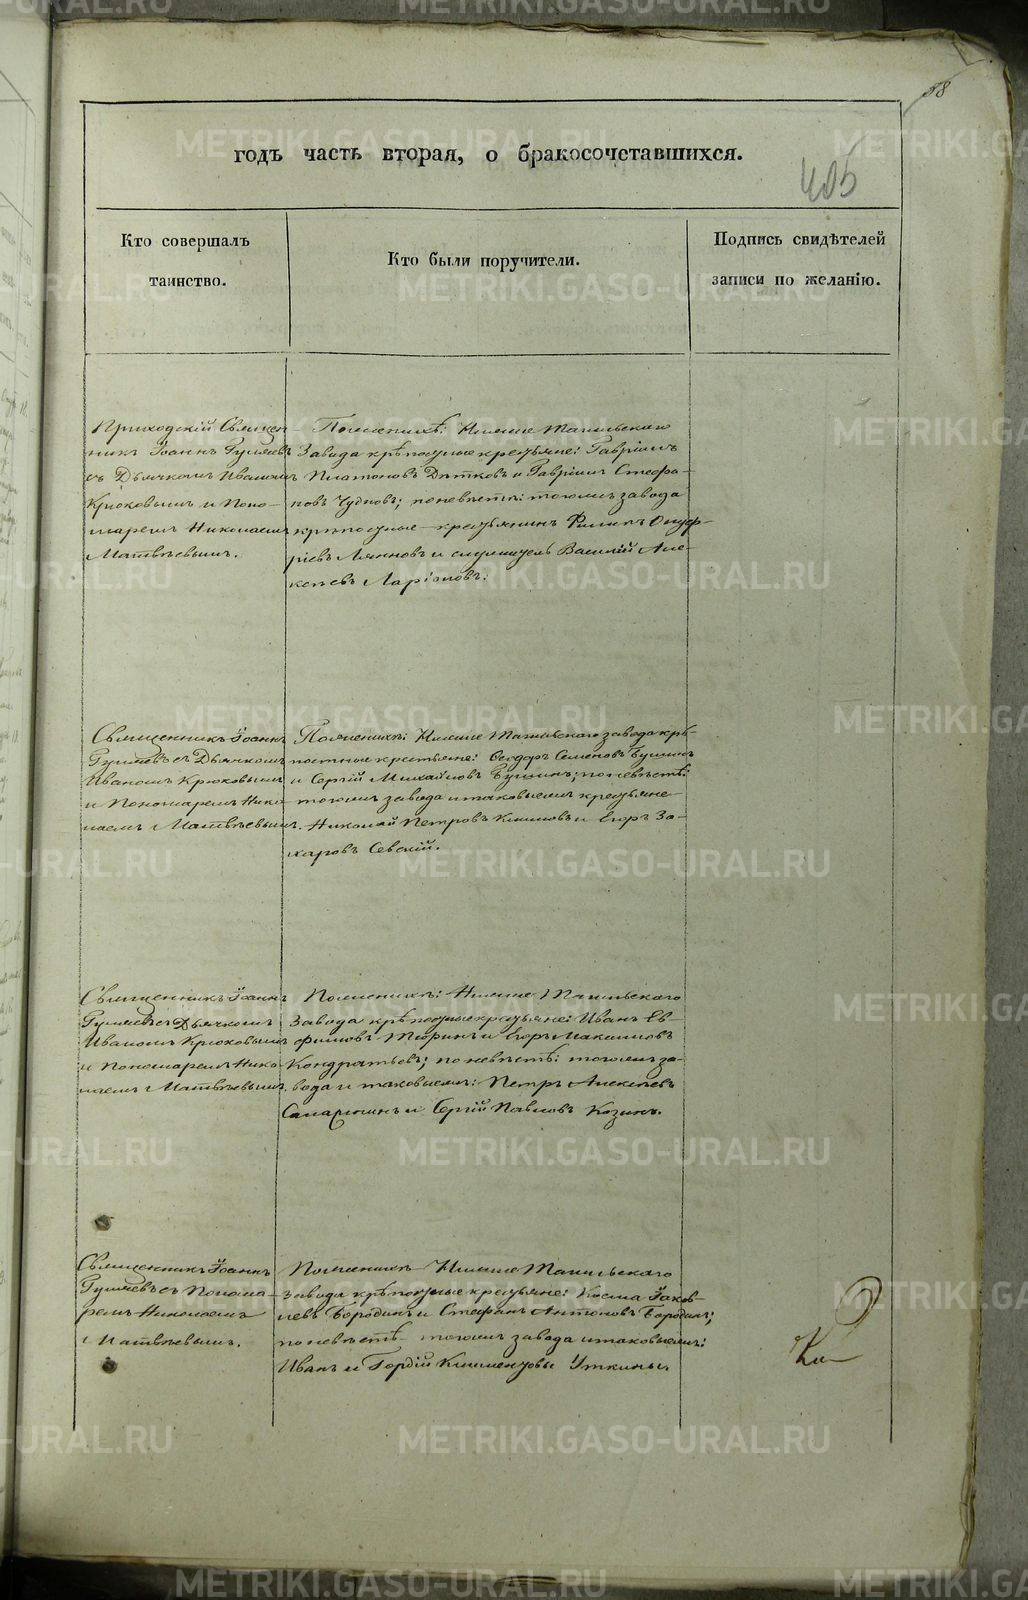 58
годъ часть вторая, о бракосочетавшихся.
405
Кто совершалъ
таинство.
Кто были поручители.
Подпись свидѣтелей
записи по желанію.
Приходскій Священ-
никъ Іоаннъ Гуляевъ
съ Дьячкомъ Иваномъ
Крюковымъ и Поно-
маремъ Николаемъ
Матвѣевымъ.
По женихѣ: Нижне Тагильскаго
Завода крѣпостные крестьяне: Гавріилъ
Платоновъ Дѣтковъ и Гавріилъ Стефа-
новъ Чудновъ; по невѣстѣ: тогожъ завода
крѣпостные крестьянинъ Филипъ Онуф-
ріевъ и служитель Василій Але-
ксѣевъ Ларіоновъ.
Священникъ Іоаннъ
Гуляевъ съ Дьячкомъ
Иваномъ Крюковымъ
и Пономаремъ Нико-
лаемъ Матвѣевымъ.
По женихѣ: Нижне Тагильскаго завода крѣ-
постные крестьяне: Ѳеодоръ Семеновъ
и Сергій Михайловъ по невѣстѣ:
тогожъ завода и таковыежъ крестьяне
Николай Петровъ Климовъ и Егоръ За-
харовъ Севскій.
Священникъ Іоаннъ
Гуляевъ съ Дьячкомъ
Иваномъ Крюковымъ
и Пономаремъ Нико-
лаемъ Матвѣевымъ.
По женихѣ: Нижне Тагильскаго
Завода крѣпостные крестьяне: Иванъ Ев-
фимовъ Тюринъ и Егоръ Максимовъ
Кондратьевъ; по невѣстѣ: тогожъ за-
вода и таковыежъ: Петръ Алексѣевъ
и Сергій Павловъ Козинъ.
Священникъ Іоаннъ
Гуляевъ съ Понома-
ремъ Николаемъ
Матвѣевымъ.
По женихѣ Нижне Тагильскаго
завода крѣпостные крестьяне: Косма Іаков-
левъ Бородинъ и Стефанъ Антоновъ Бородинъ;
по невѣстѣ тогожъ завода и таковыежъ:
Иванъ и Гордій Климентовы Уткины.
METRIKI.GASO-URAL.RU